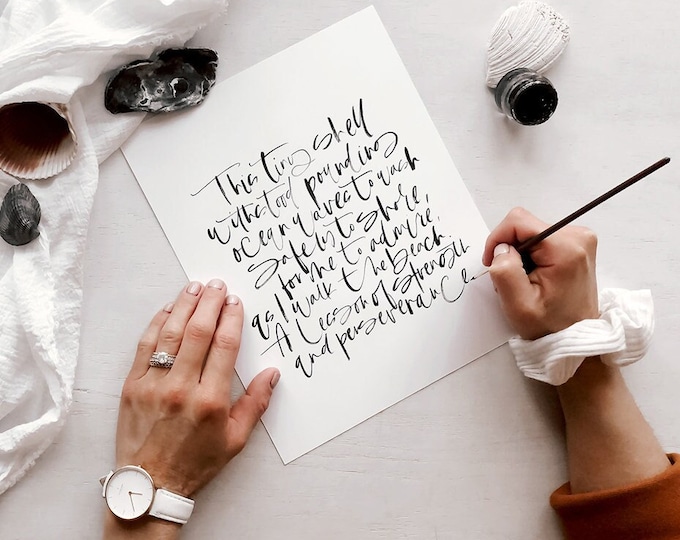 This tiny shell
withstood pounding
ocean waves to wash
safely to shore,
for me to admire,
as I walk the beach.
A lesson of strength
and perseverance.